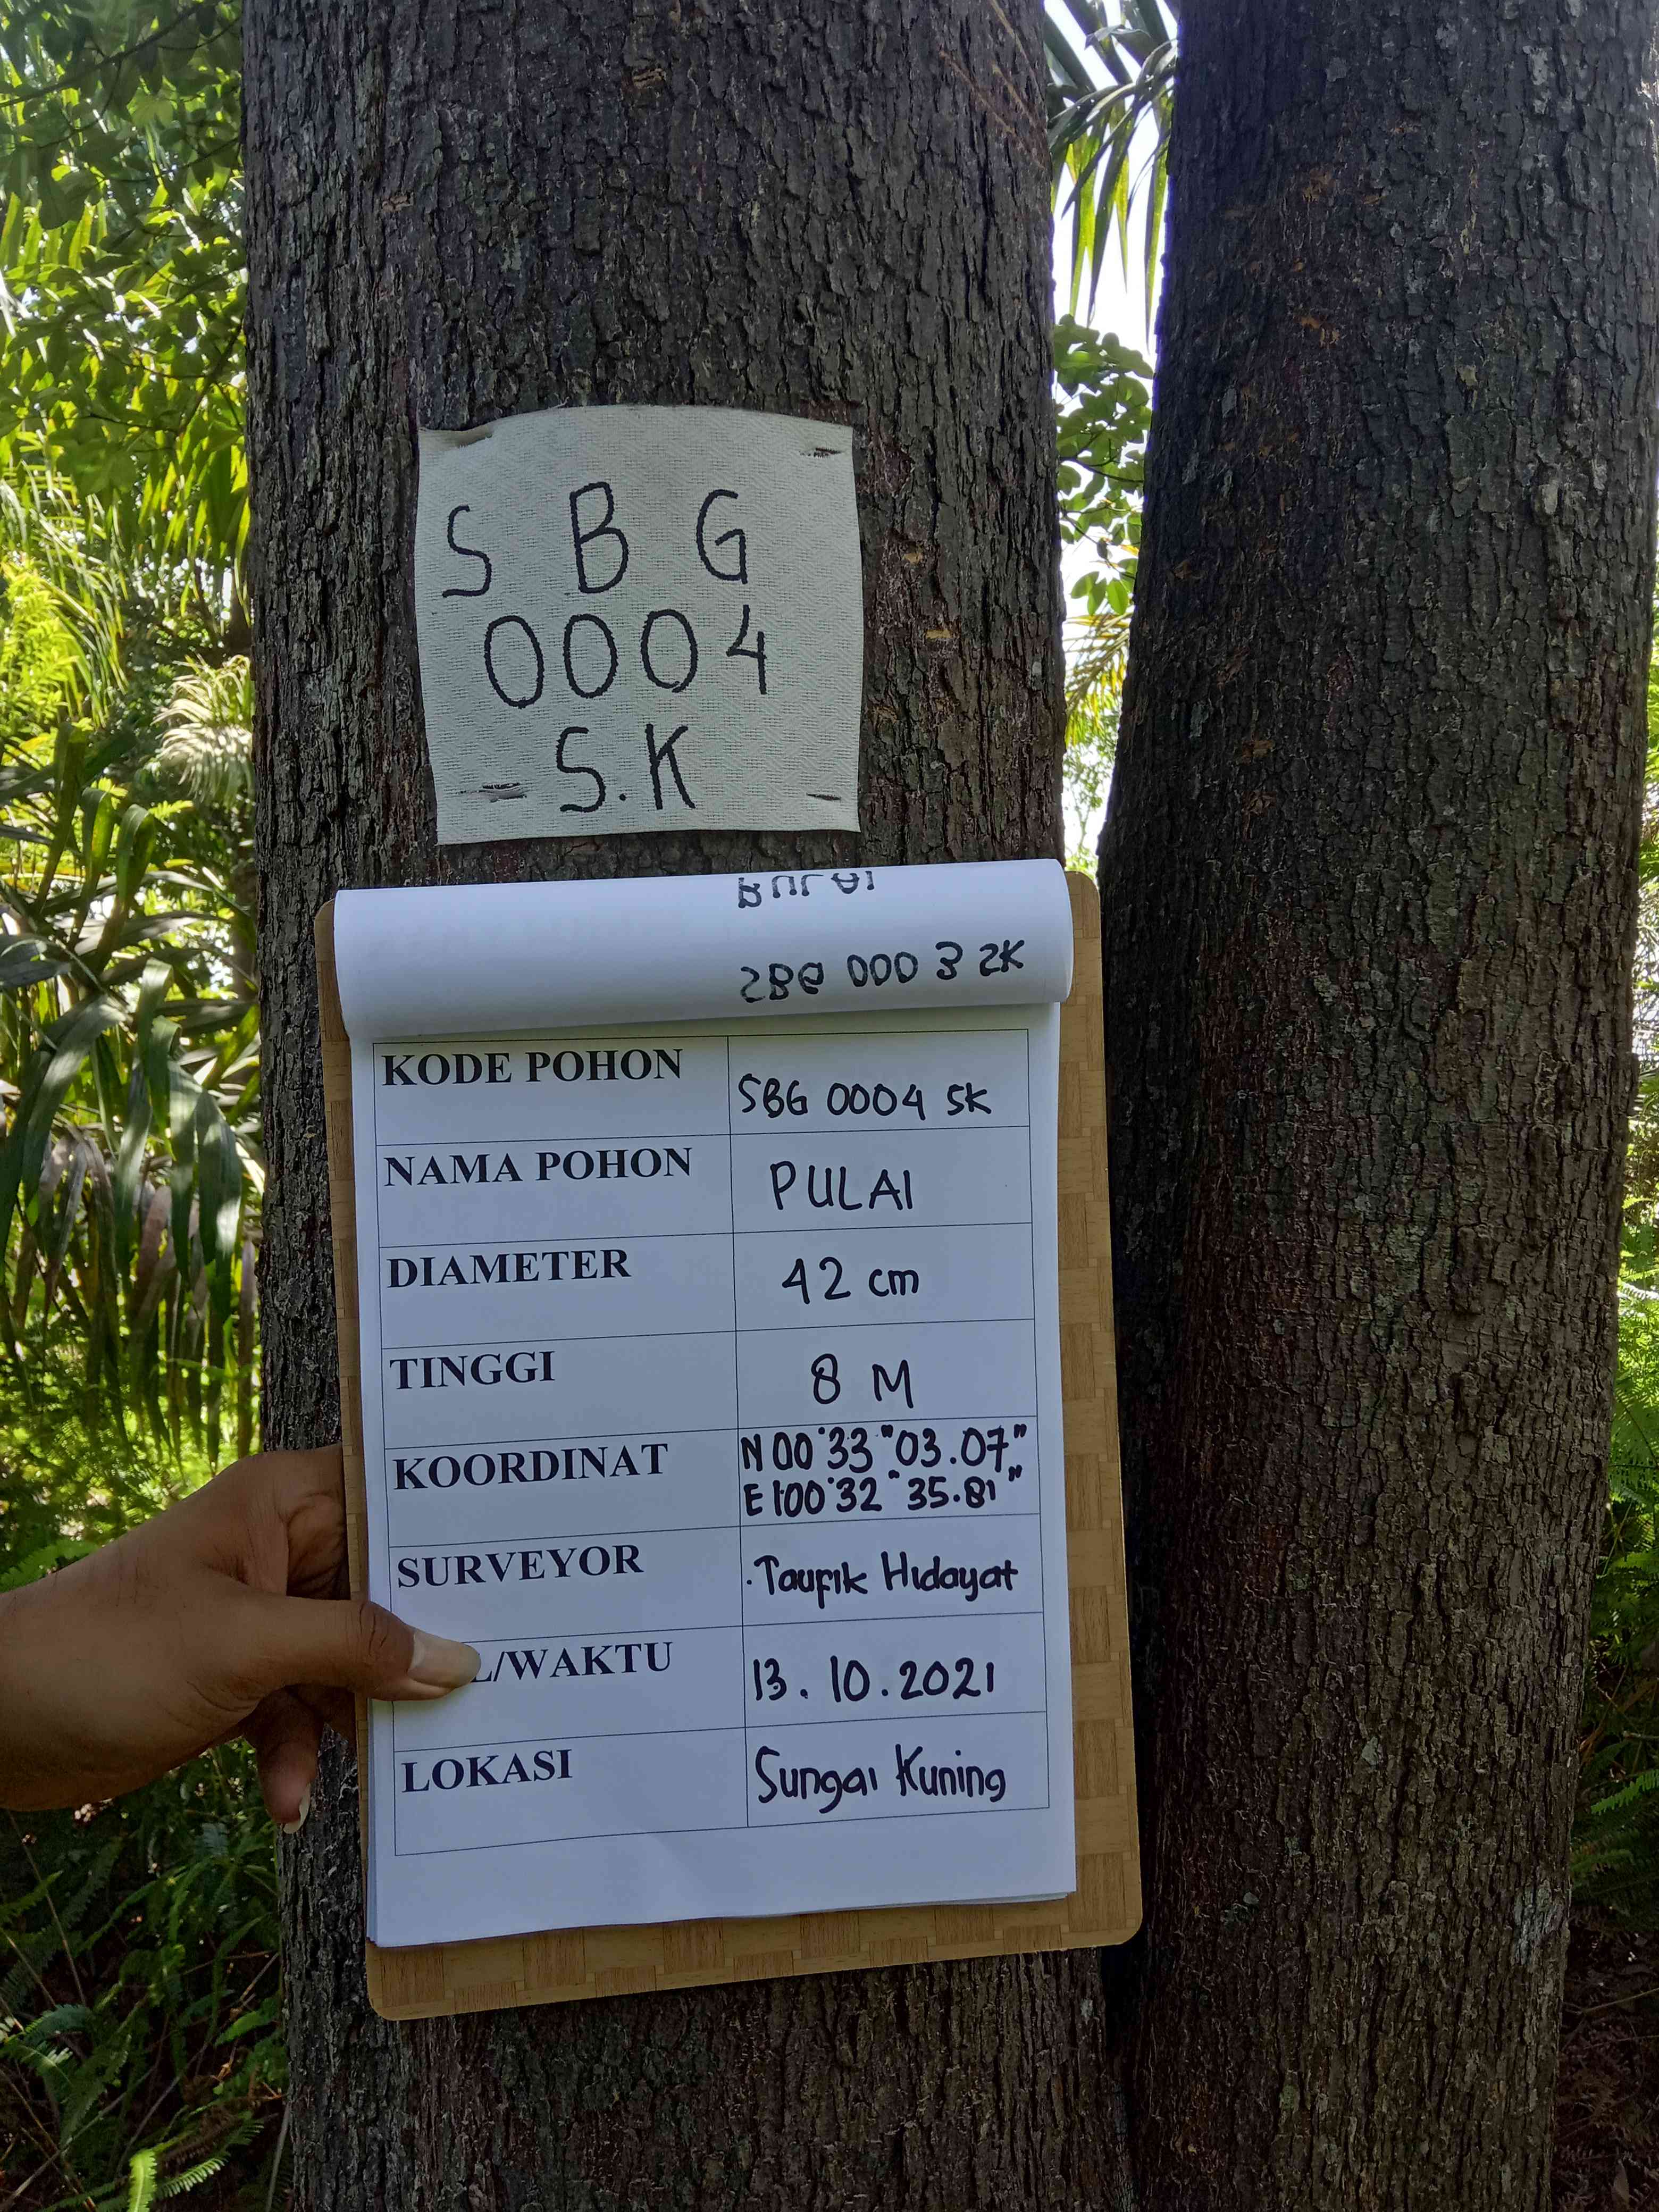 S B G
0004
S.K
PULAI
SBG 0003 SK
KODE POHON SBG 0004 SK
NAMA POHON PULAI
DIAMETER 42 cm
TINGGI 8 M
KOORDINAT N 00°33"03.07"
E 100°32"35.81"
SURVEYOR Taufik Hidayat
L/WAKTU 13.10.2021
LOKASI Sungai Kuning